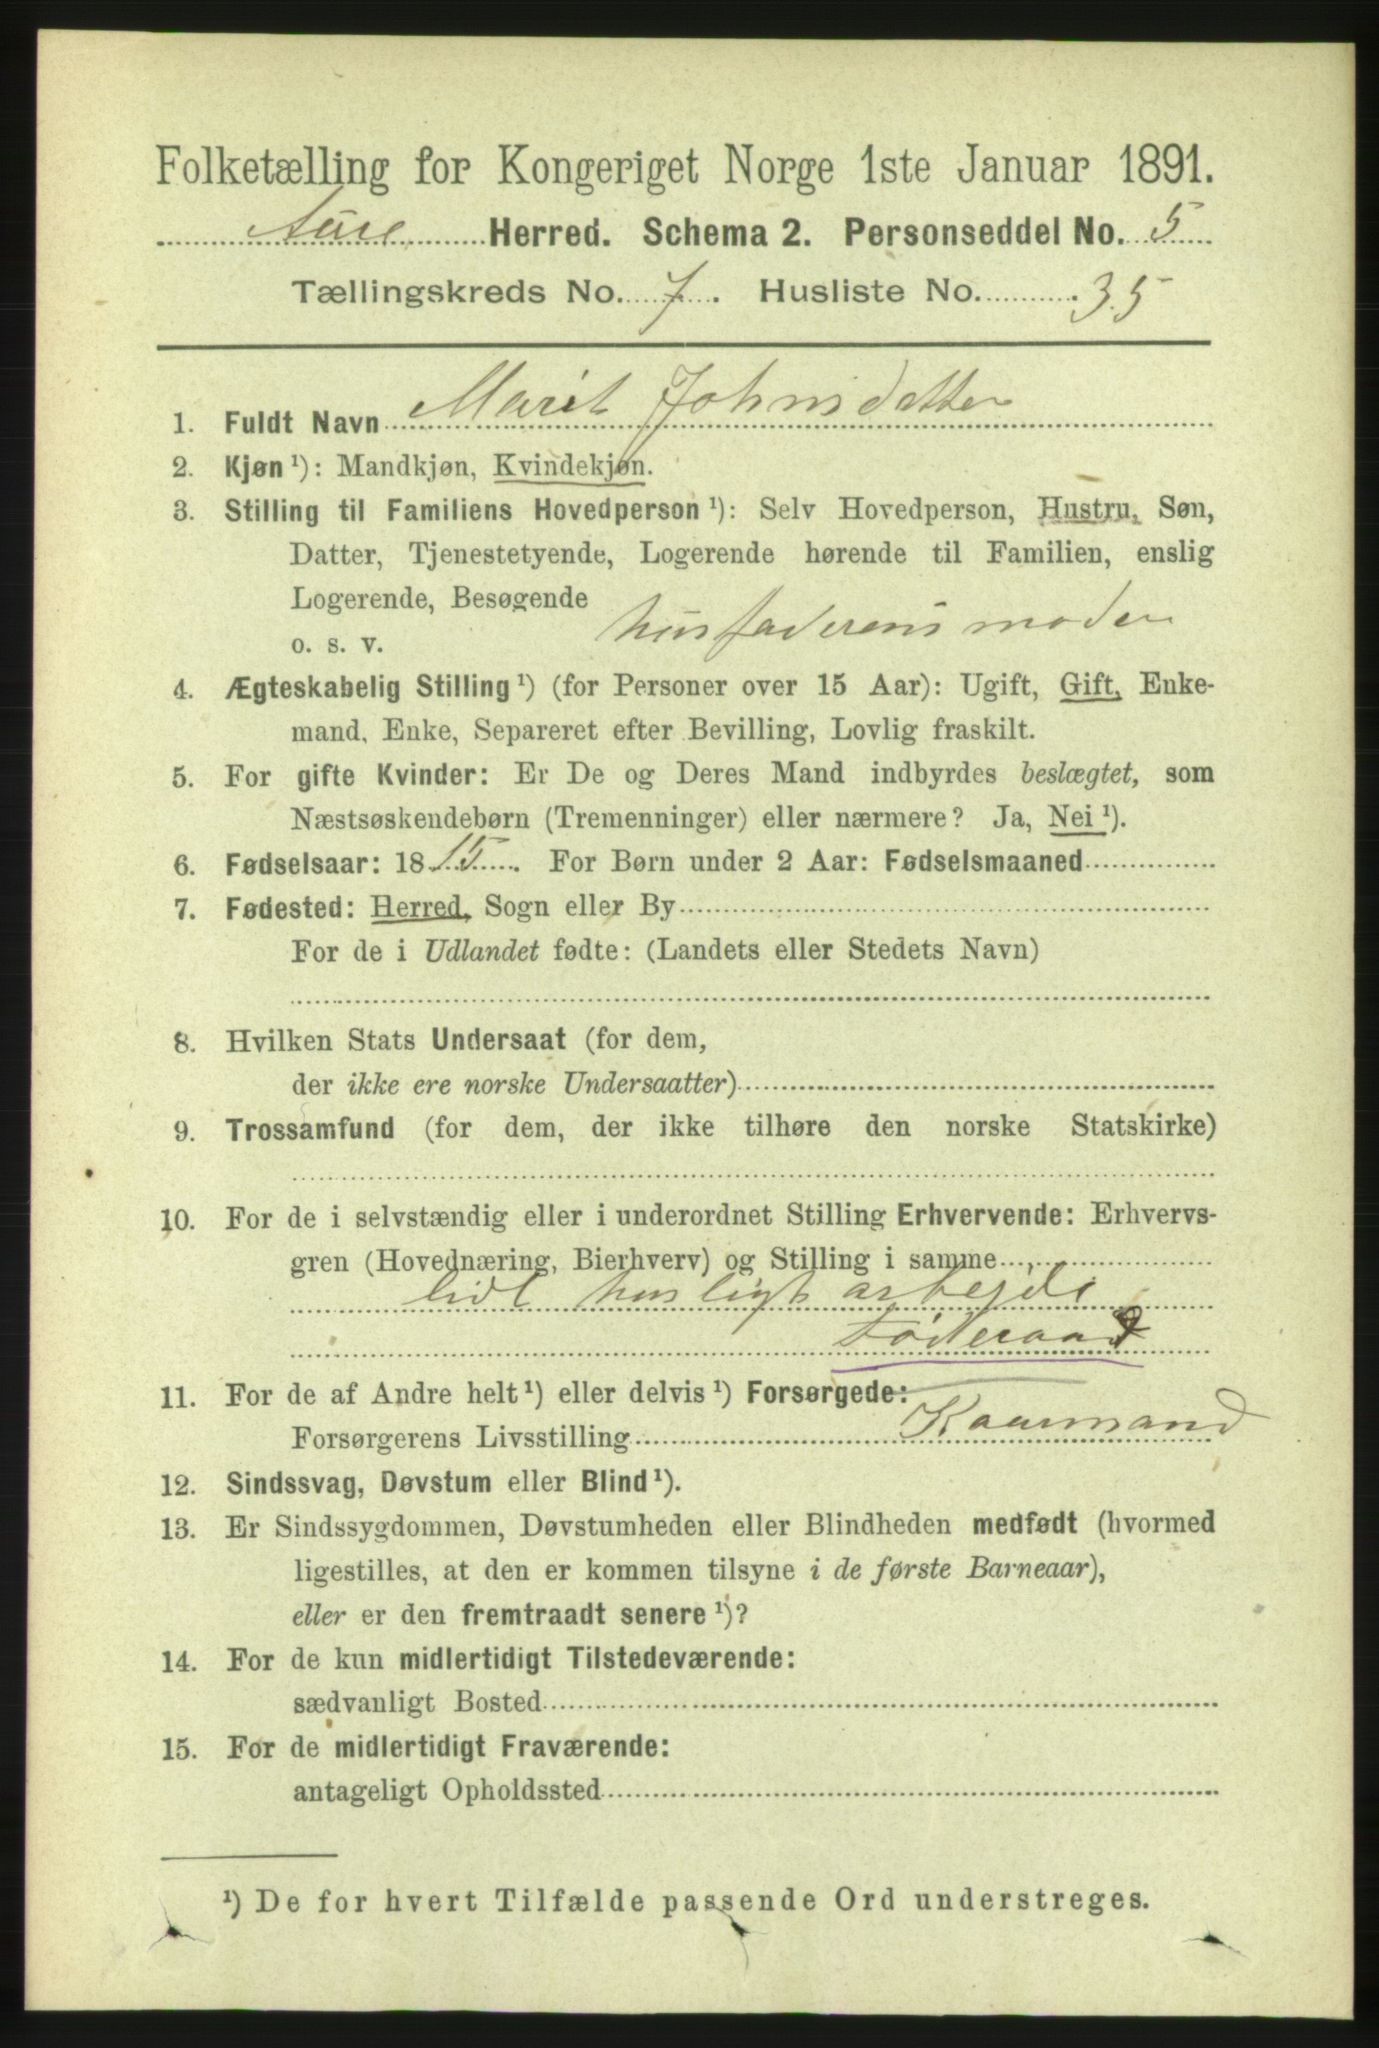 Folketælling for Kongeriget Norge 1ste Januar 1891.
Aure Herred. Schema 2. Personseddel No. 5
Tællingskreds No. 7. Husliste No. 35
1. Fuldt Navn Marit Johnsdatter
2. Kjøn ¹): Mandkjøn, Kvindekjøn.
3. Stilling til Familiens Hovedperson ¹): Selv Hovedperson, Hustru, Søn,
Datter, Tjenestetyende, Logerende hørende til Familien, enslig
Logerende, Besøgende
o. s. v. husfaderens moder
4. Ægteskabelig Stilling ¹) (for Personer over 15 Aar): Ugift, Gift, Enke-
mand, Enke, Separeret efter Bevilling, Lovlig fraskilt.
5. For gifte Kvinder: Er De og Deres Mand indbyrdes beslægtet, som
Næstsøskendebørn (Tremenninger) eller nærmere? Ja, Nei ¹).
6. Fødselsaar: 1815. For Børn under 2 Aar: Fødselsmaaned
7. Fødested: Herred, Sogn eller By
For de i Udlandet fødte: (Landets eller Stedets Navn)
8. Hvilken Stats Undersaat (for dem,
der ikke ere norske Undersaatter)
9. Trossamfund (for dem, der ikke tilhøre den norske Statskirke)
10. For de i selvstændig eller i underordnet Stilling Erhvervende: Erhvervs-
gren (Hovednæring, Bierhverv) og Stilling i samme
lidt husligt arbejde
Føderaad
11. For de af Andre helt ¹) eller delvis ¹) Forsørgede:
Forsørgerens Livsstilling Kaarmand
12. Sindssvag, Døvstum eller Blind ¹).
13. Er Sindssygdommen, Døvstumheden eller Blindheden medfødt (hvormed
ligestilles, at den er kommen tilsyne i de første Barneaar),
eller er den fremtraadt senere ¹)?
14. For de kun midlertidigt Tilstedeværende:
sædvanligt Bosted
15. For de midlertidigt Fraværende:
antageligt Opholdssted
¹) De for hvert Tilfælde passende Ord understreges.